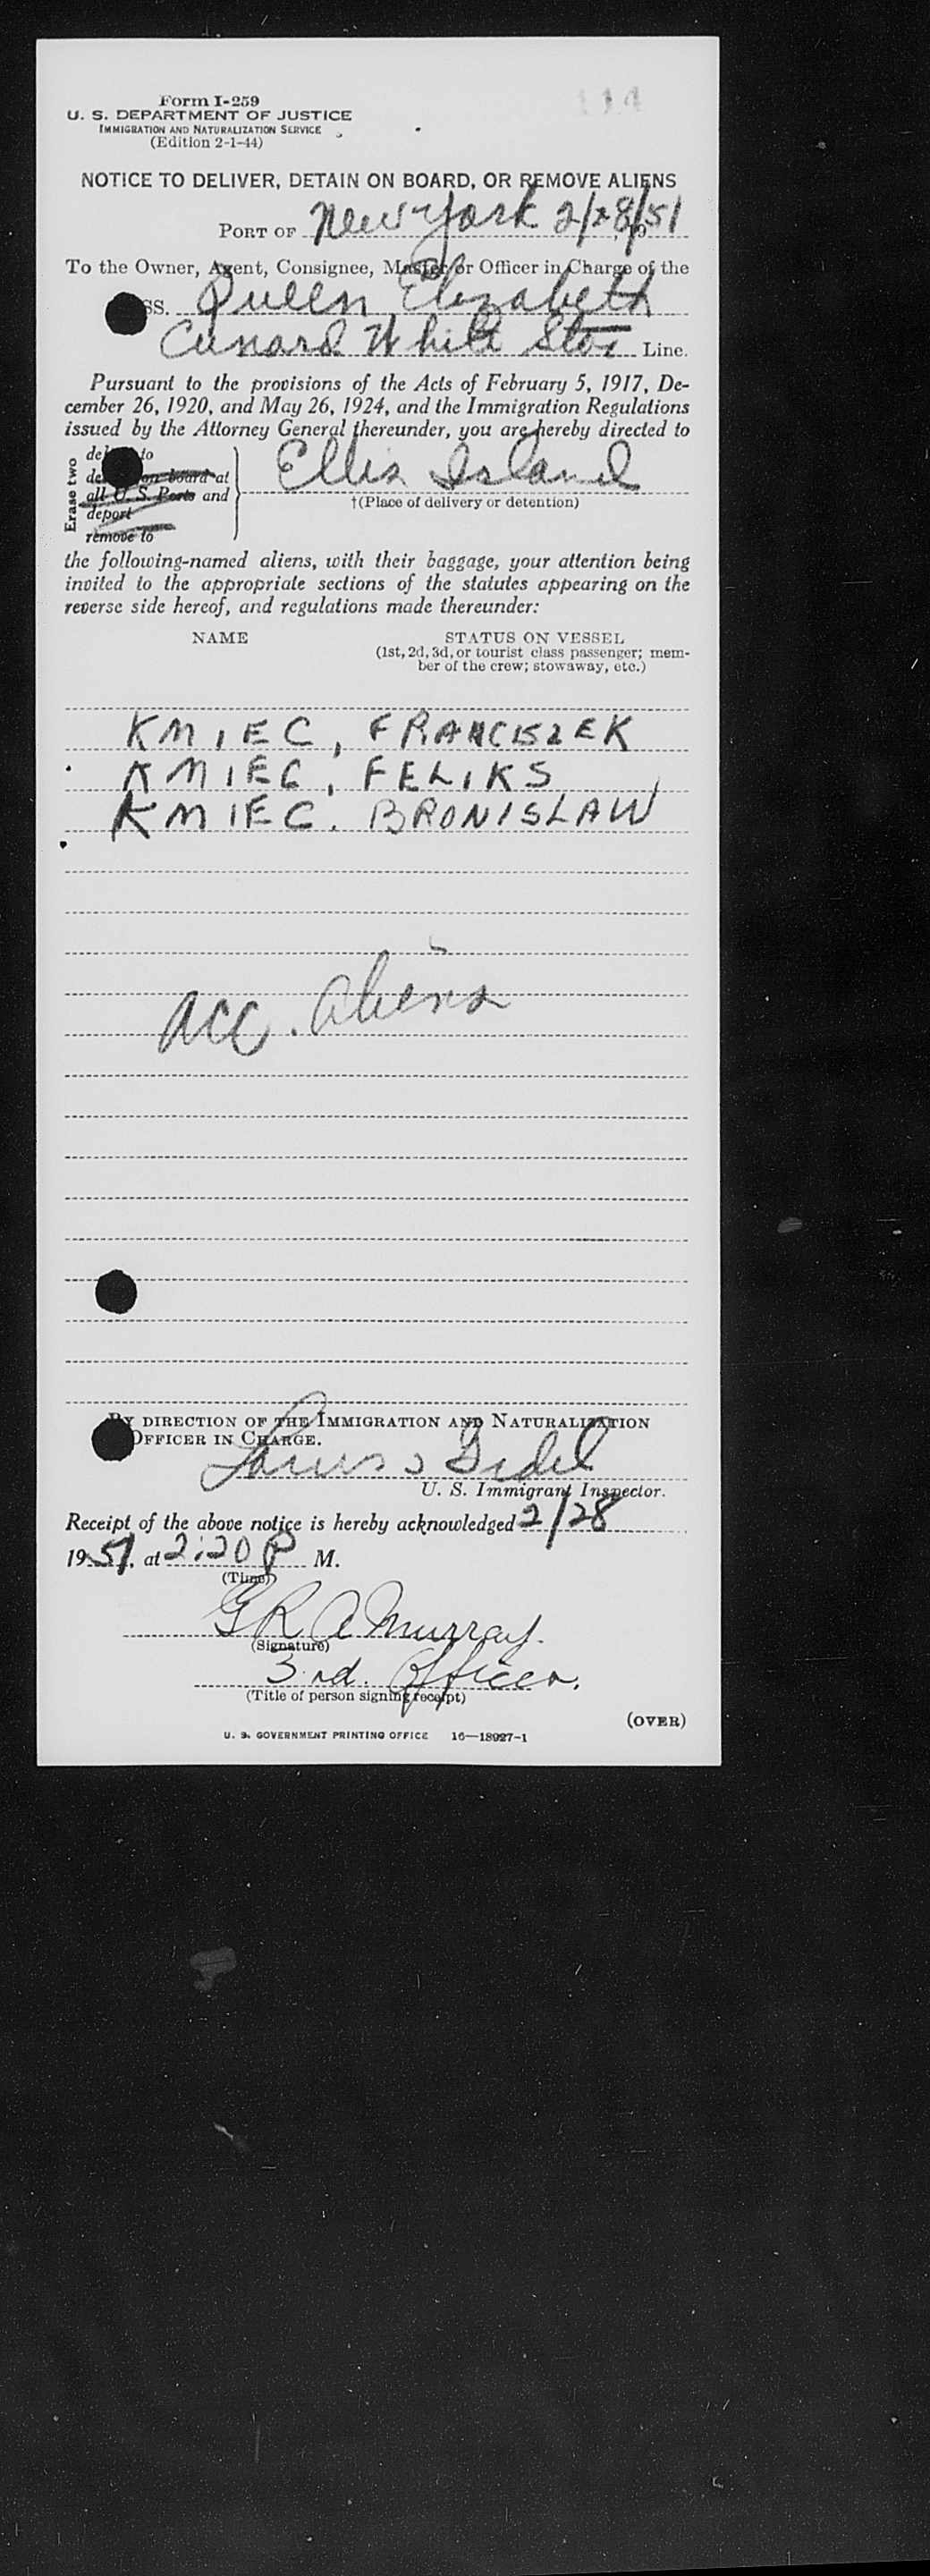 114
Form I-259
U. S. DEPARTMENT OF JUSTICE
IMMIGRATION AND NATURALIZATION SERVICE
(Edition 2-1-44)
NOTICE TO DELIVER, DETAIN ON BOARD, OR REMOVE ALIENS
PORT OF New York 2/28/51
To the Owner, Agent, Consignee, Master or Officer in Charge of the
SS. Queen Elizabeth
Cunard White Star Line.
Pursuant to the provisions of the Acts of February 5, 1917, De-
cember 26, 1920, and May 26, 1924, and the Immigration Regulations
issued by the Attorney General thereunder, you are hereby directed to
Erase two
to
on board at
all U. S. Ports and
deport
remove to
Ellis Island
†(Place of delivery or detention)
the following-named aliens, with their baggage, your attention being
invited to the appropriate sections of the statutes appearing on the
reverse side hereof, and regulations made thereunder:
NAME STATUS ON VESSEL
(1st, 2d, 3d, or tourist class passenger; mem-
ber of the crew; stowaway, etc.)
KMIEC, FRANCISZEK
KMIEC, FELIKS
KMIEC. BRONISLAW
acc. aliens
BY DIRECTION OF THE IMMIGRATION AND NATURALIZATION
OFFICER IN CHARGE.
U. S. Immigrant Inspector.
Receipt of the above notice is hereby acknowledged 2/28
1951, at 2:20 P M.
(Time)
G R A Murray.
(Signature)
3rd. Officer.
(Title of person signing receipt)
(OVER)
U. S. GOVERNMENT PRINTING OFFICE 16—18927-1